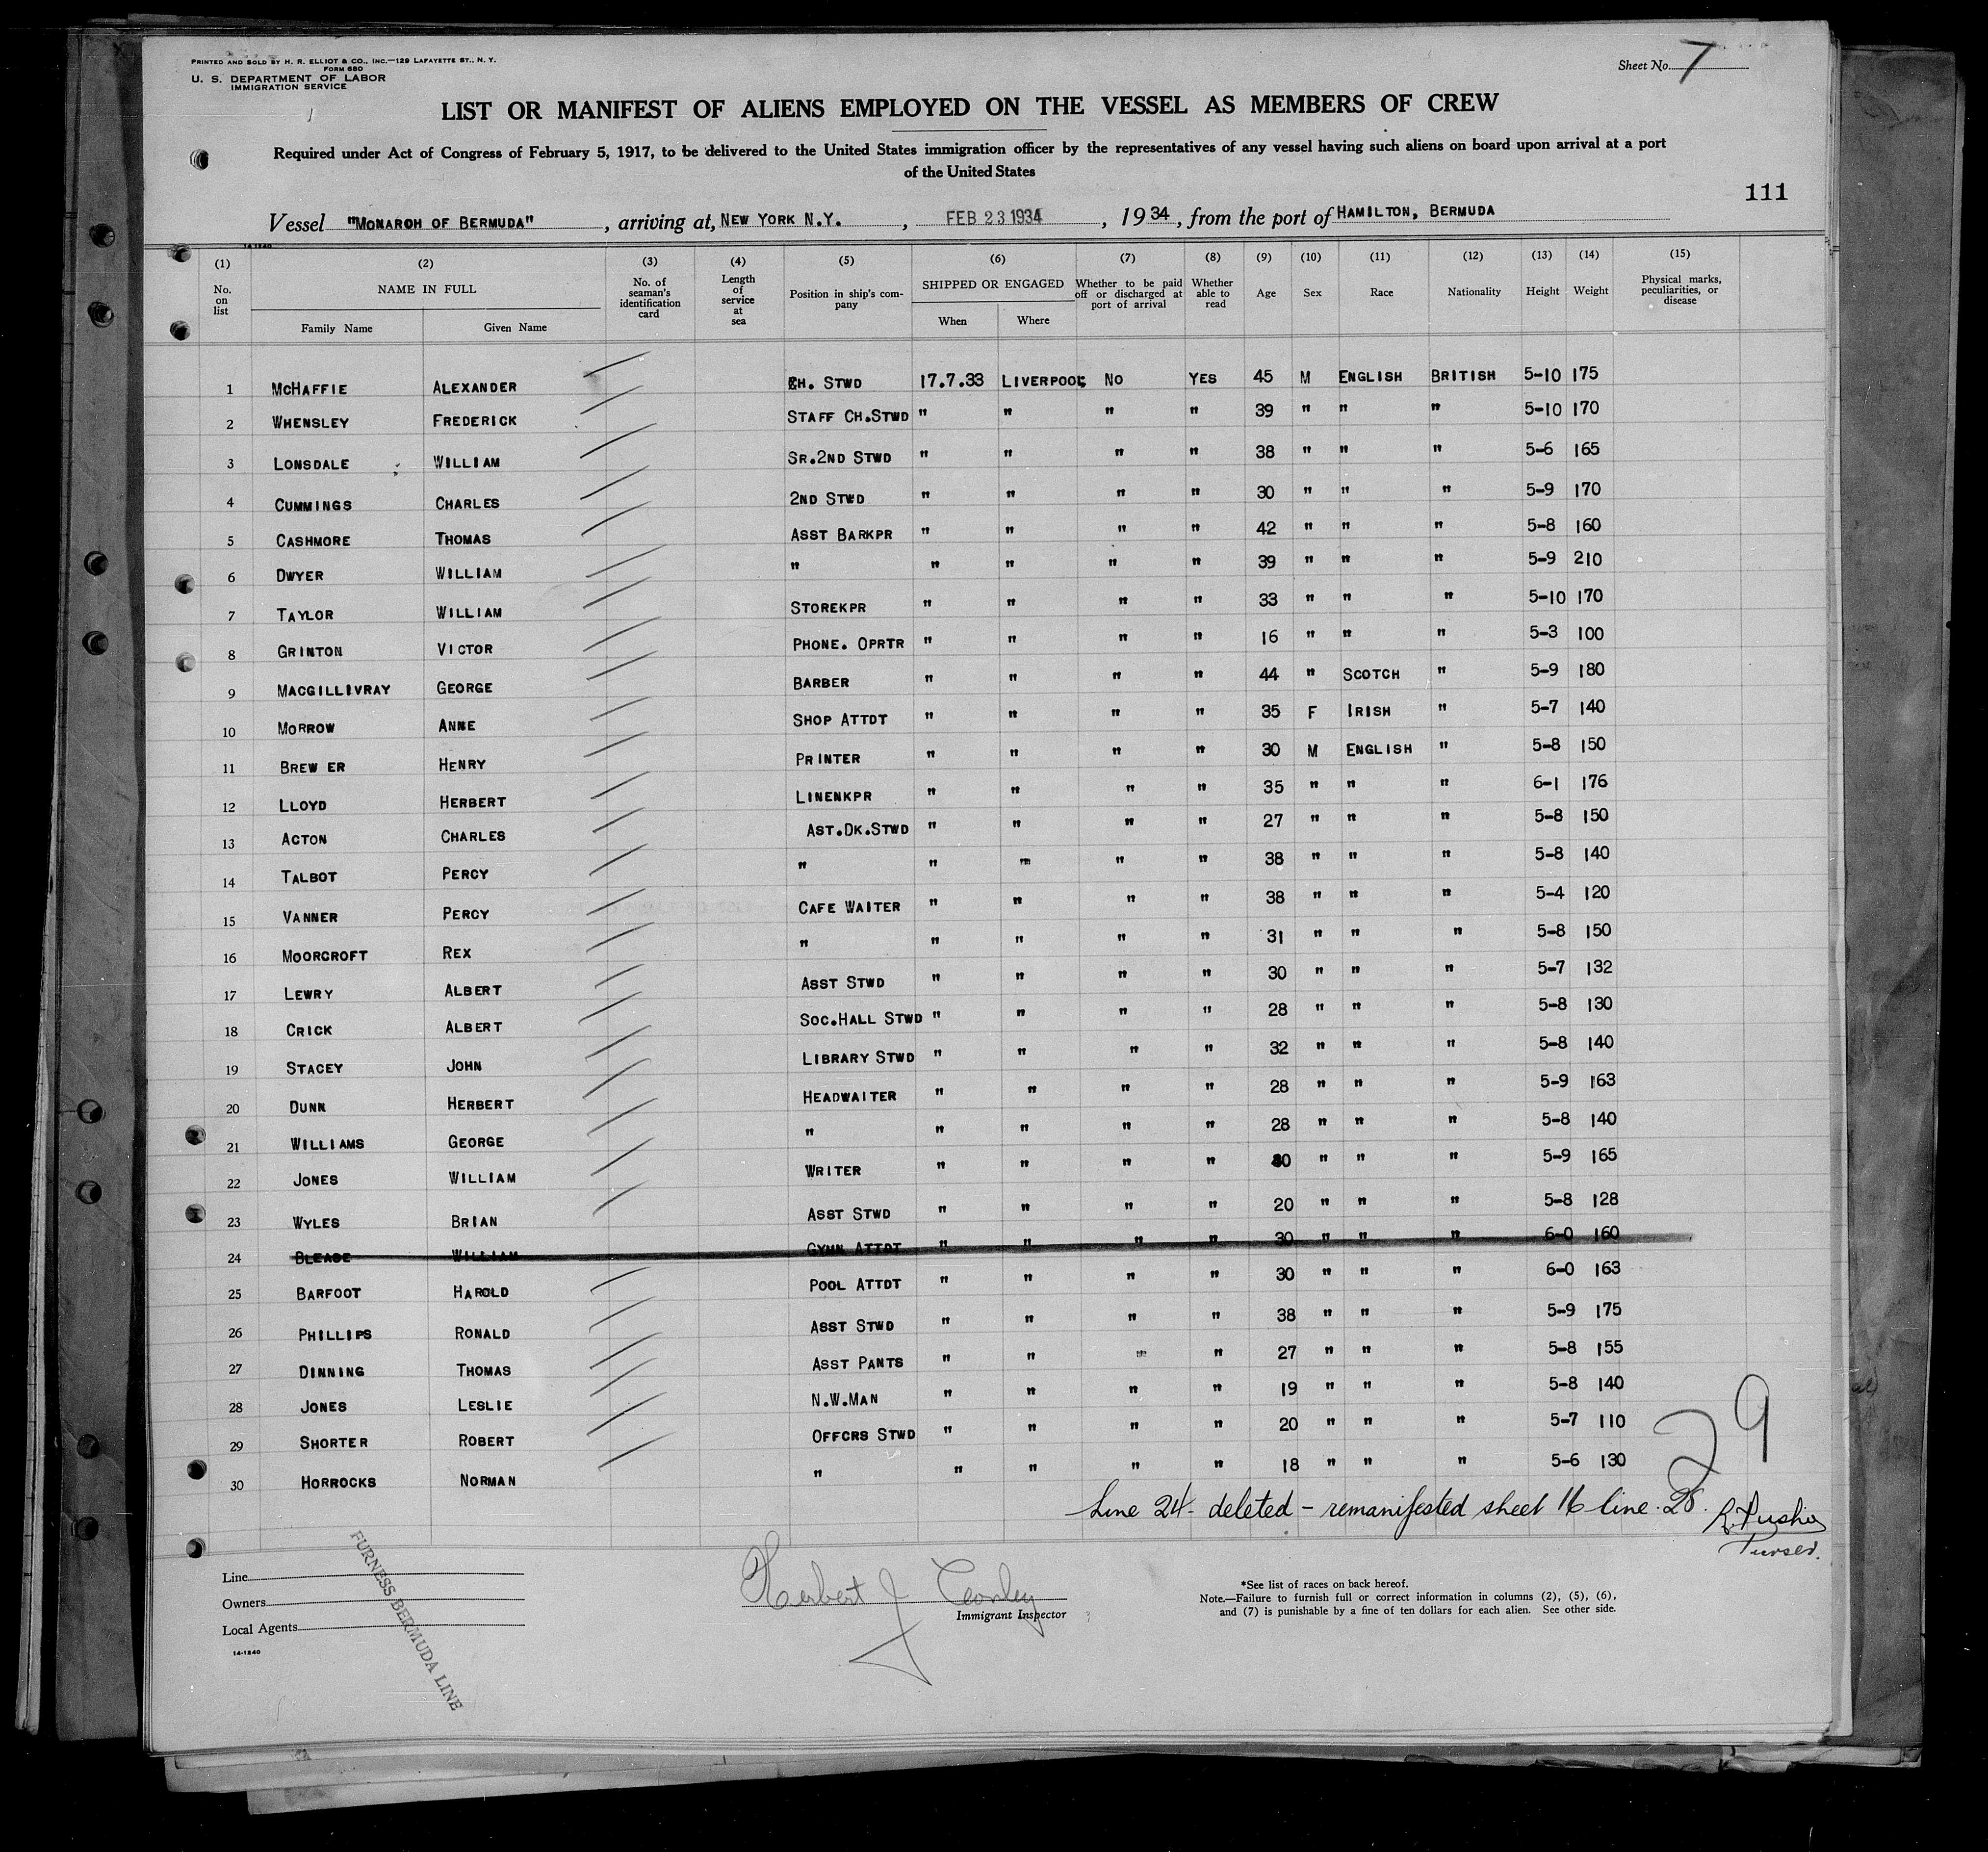 PRINTED AND SOLD BY H. R. ELLIOT & CO., INC.—129 LAFAYETTE ST., N. Y.
FORM 680
U. S. DEPARTMENT OF LABOR
IMMIGRATION SERVICE
Sheet No. 7
LIST OR MANIFEST OF ALIENS EMPLOYED ON THE VESSEL AS MEMBERS OF CREW
Required under Act of Congress of February 5, 1917, to be delivered to the United States immigration officer by the representatives of any vessel having such aliens on board upon arrival at a port
of the United States
111
Vessel "MONARCH OF BERMUDA", arriving at, NEW YORK N.Y., FEB 23 1934, 1934, from the port of HAMILTON, BERMUDA
14-1240
(1) (2) (3) (4) (5) (6) (7) (8) (9) (10) (11) (12) (13) (14) (15)
No. on list NAME IN FULL Family Name Given Name No. of seaman's identification card Length of service at sea Position in ship's company SHIPPED OR ENGAGED When Where Whether to be paid off or discharged at port of arrival Whether able to read Age Sex Race Nationality Height Weight Physical marks, peculiarities, or disease
1 MCHAFFIE ALEXANDER CH. STWD 17.7.33 LIVERPOOL NO YES 45 M ENGLISH BRITISH 5-10 175
2 WHENSLEY FREDERICK STAFF CH.STWD " " " " 39 " " " 5-10 170
3 LONSDALE WILLIAM SR.2ND STWD " " " " 38 " " " 5-6 165
4 CUMMINGS CHARLES 2ND STWD " " " " 30 " " " 5-9 170
5 CASHMORE THOMAS ASST BARKPR " " " " 42 " " " 5-8 160
6 DWYER WILLIAM " " " " " 39 " " " 5-9 210
7 TAYLOR WILLIAM STOREKPR " " " " 33 " " " 5-10 170
8 GRINTON VICTOR PHONE. OPRTR " " " " 16 " " " 5-3 100
9 MACGILLIVRAY GEORGE BARBER " " " " 44 " SCOTCH " 5-9 180
10 MORROW ANNE SHOP ATTDT " " " " 35 F IRISH " 5-7 140
11 BREW ER HENRY PRINTER " " " " 30 M ENGLISH " 5-8 150
12 LLOYD HERBERT LINENKPR " " " " 35 " " " 6-1 176
13 ACTON CHARLES AST.DK.STWD " " " " 27 " " " 5-8 150
14 TALBOT PERCY " " " " " 38 " " " 5-8 140
15 VANNER PERCY CAFE WAITER " " " " 38 " " " 5-4 120
16 MOORCROFT REX " " " " " 31 " " " 5-8 150
17 LEWRY ALBERT ASST STWD " " " " 30 " " " 5-7 132
18 CRICK ALBERT SOC.HALL STWD " " " " 28 " " " 5-8 130
19 STACEY JOHN LIBRARY STWD " " " " 32 " " " 5-8 140
20 DUNN HERBERT HEADWAITER " " " " 28 " " " 5-9 163
21 WILLIAMS GEORGE " " " " " 28 " " " 5-8 140
22 JONES WILLIAM WRITER " " " " " " " 5-9 165
23 WYLES BRIAN ASST STWD " " " " 20 " " " 5-8 128
24 BLEASE WILLIAM GYMN ATTDT " " " " 30 " " " 6-0 160
25 BARFOOT HAROLD POOL ATTDT " " " " 30 " " " 6-0 163
26 PHILLIPS RONALD ASST STWD " " " " 38 " " " 5-9 175
27 DINNING THOMAS ASST PANTS " " " " 27 " " " 5-8 155
28 JONES LESLIE N.W.MAN " " " " 19 " " " 5-8 140
29 SHORTER ROBERT OFFCRS STWD " " " " 20 " " " 5-7 110
30 HORROCKS NORMAN " " " " " 18 " " " 5-6 130
29
Line 24 - deleted - remanifested sheet 16 line 25.
Purser.
Line
Owners
Local Agents
14-1240
FURNESS BERMUDA LINE
Herbert J
Immigrant Inspector
*See list of races on back hereof.
Note.—Failure to furnish full or correct information in columns (2), (5), (6),
and (7) is punishable by a fine of ten dollars for each alien. See other side.